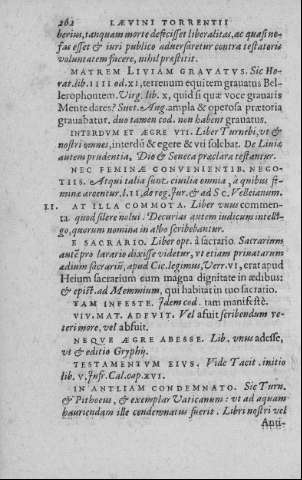 262 LÆVINI TORRENTII
berius, tanquam morte defecisset liberalitas, ac quasi nefas
esset & iuri publico aduersaretur contra testatoris
voluntatem facere, nihil prestitit.
MATREM LIVIAM GRAVATVS. Sic Horat.
lib. IIII od. XI, terrenum equitem grauatus Bellerophontem.
Virg. lib. X, quid si quæ voce grauaris
Mente dares? Suet. Aug. ampla & operosa prætoria
grauabatur. duo tamen cod. non habent grauatus.
INTERDVM ET ÆGRE VTI. Liber Turnebi, vt &
nostri omnes, interdū & egere & vei solebat. De Liuiæ
autem prudentia, Dio & Seneca præclara testantur.
NEC FEMINÆ CONVENIENTIB. NEGOTIIS.
Atqui talia sunt ciuilia omnia, a quibus feminæ
arcentur. l. II, de reg. Iur. & ad S C. Velleianum.
II. AT ILLA COMMOTA. Liber vnus commenta.
quod silere nolui. Decurias autem iudicum intellego,
quorum nomina in albo scribebantur.
E SACRARIO. Liber opt. à sacrario. Sacrarium
autē pro larario dixisse videtur, vt etiam priuatarum
ædium sacrariū, apud Cic. legimus, Verr. VI, erat apud
Heium sacrarium eum magna dignitate in ædibus:
& epist. ad Memmium, qui habitat in tuo sacrario.
TAM INFESTE. Idem cod. tam manifestè.
VIV. MAT. ADFVIT. Vel afuit scribendum veteri
more, vel abfuit.
NEQVE ÆGRE ABESSE. Lib. vnus adesse,
vt & editio Gryphij.
TESTAMENTVM EIVS. Vide Tacit. initio
lib. V, Insr. Cal. cap. XVI.
IN ANTLIAM CONDEMNATO. Sic Turn.
& Pithoeus, & exemplar Vaticanum: vt ad aquam
hauriendam ille condemnatus fuerit. Libri nostri vel
Anti-